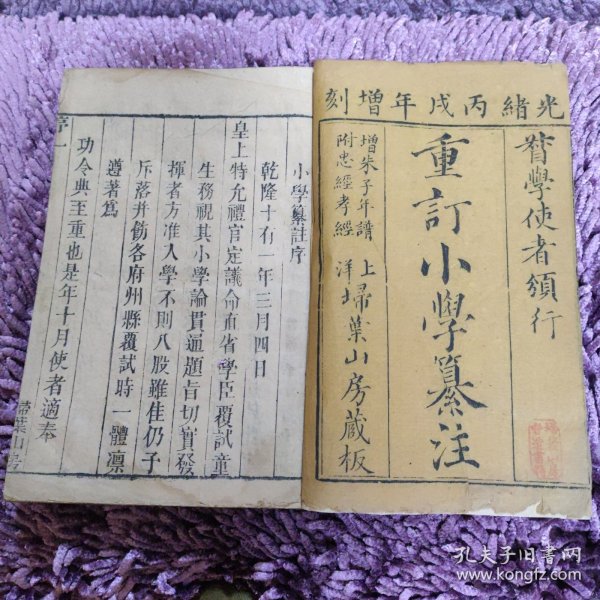 光緒丙戌年增刻
督學使者頒行
重訂小學纂注
增朱子年譜
附忠經孝經
上洋掃葉山房藏板
小學纂註序
乾隆十有一年三月四日
皇上特允禮官定議命直省學臣覆試童
生務視其小學論貫通題旨切實發
揮者方准入學不則八股雖佳仍予
斥落并飭各府州縣覆試時一體凛
遵著爲
功令典至重也是年十月使者適奉
序一
掃葉山房
孔夫子旧书网
www.kongfz.com